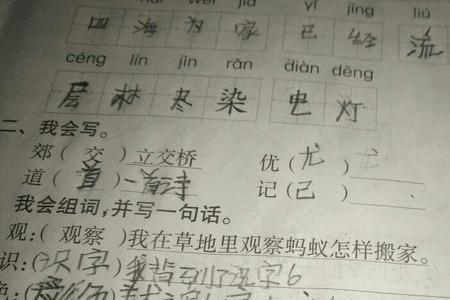 hǎi wéi jiā yǐ jīng liú
四海为家 已经 流
céng lín jìn rǎn diàn dēng
层林尽染 电灯
二、我会写。
郊(交)立交桥 优(尤)
道(首)一首诗 记(己)
我会组词,并写一句话。
观:(观察)我在草地里观察蚂蚁怎样搬家。
识:(识字)我